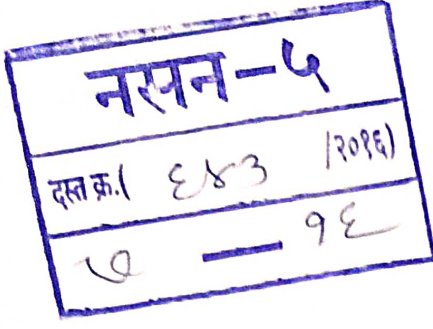 नसन-५
दस्त क्र.( ६४३ /२०१६)
७ — १६